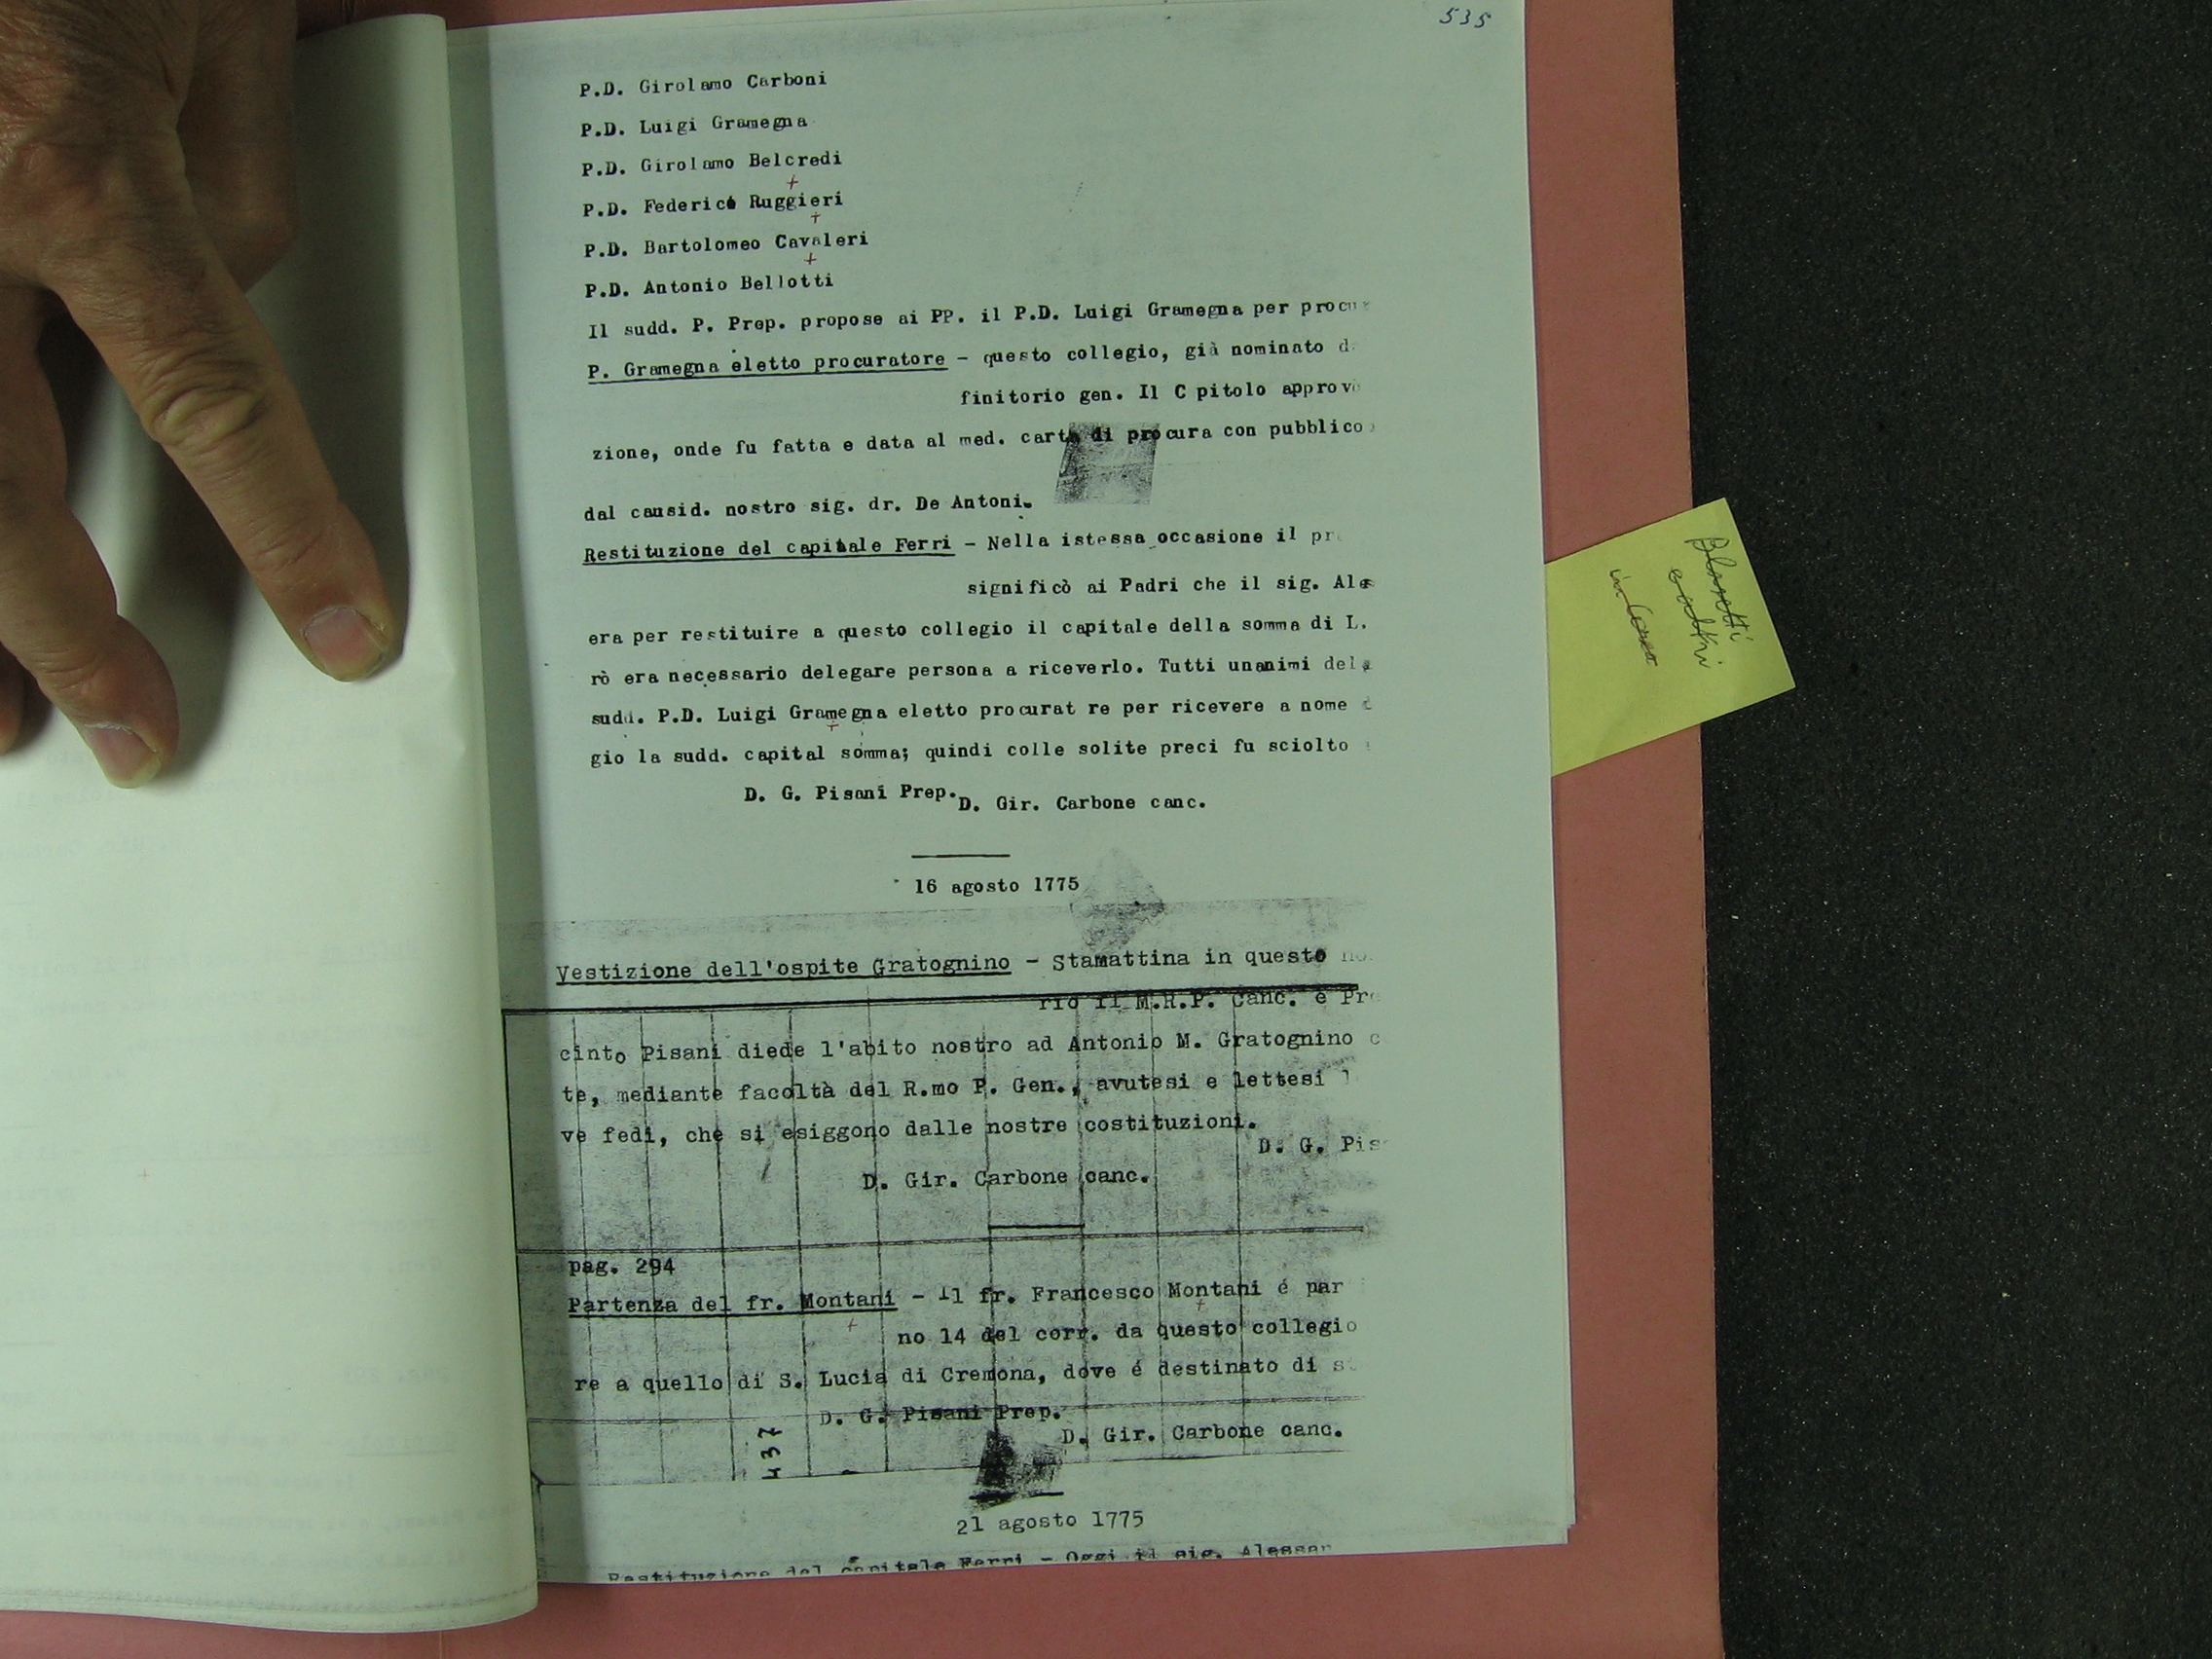 535
P.D. Girolamo Carboni
P.D. Luigi Gramegna
P.D. Girolamo Belcredi
P.D. Federico Ruggieri
P.D. Bartolomeo Cavaleri
P.D. Antonio Bellotti
Il sudd. P. Prep. propose ai PP. il P.D. Luigi Gramegna per procur
P. Gramegna eletto procuratore - questo collegio, già nominato d
finitorio gen. Il C pitolo approv
zione, onde fu fatta e data al med. carta di procura con pubblico
dal causid. nostro sig. dr. De Antoni.
Restituzione del capitale Ferri - Nella istessa occasione il pr
significò ai Padri che il sig. Ale
era per restituire a questo collegio il capitale della somma di L.
rò era necessario delegare persona a riceverlo. Tutti unanimi del
sudd. P.D. Luigi Gramegna eletto procurat re per ricevere a nome
gio la sudd. capital somma; quindi colle solite preci fu sciolto
D. G. Pisani Prep.
D. Gir. Carbone canc.
16 agosto 1775
Vestizione dell'ospite Gratognino - Stamattina in questo no
rio il M.R.P. Canc. e Pr
cinto Pisani diede l'abito nostro ad Antonio M. Gratognino c
te, mediante facoltà del R.mo P. Gen., avutesi e lettesi l
ve fedi, che si esiggono dalle nostre costituzioni.
D. G. Pis
D. Gir. Carbone canc.
pag. 294
Partenza del fr. Montani - Il fr. Francesco Montani é par
no 14 del corr. da questo collegio
re a quello di S. Lucia di Cremona, dove é destinato di s
D. G. Pisani Prep.
D. Gir. Carbone canc.
437
21 agosto 1775
Restituzione del capitale Ferri - Oggi il sig. Alessan